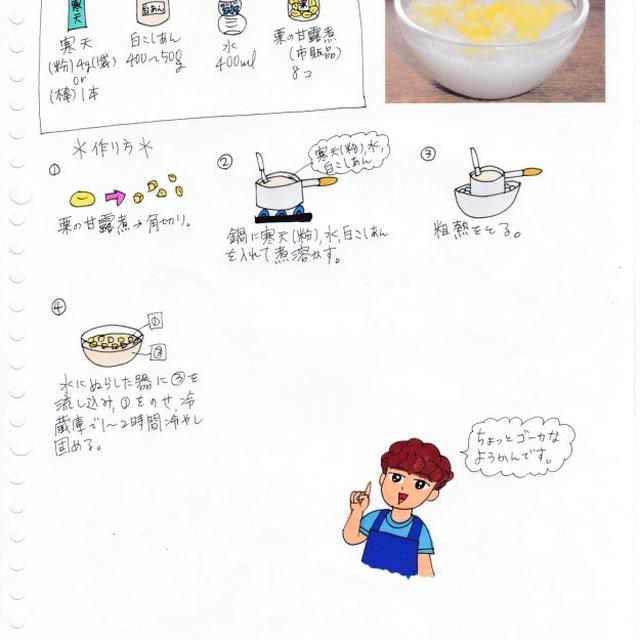 寒天
白あん
寒天
(粉)4g(1袋)
or
(棒)1本
白こしあん
400〜450g
水
400ml
栗の甘露煮
(市販品)
8コ
*作り方*
①
栗の甘露煮→角切り。
②
寒天(粉),水,
白こしあん
鍋に寒天(粉),水,白こしあん
を入れて煮溶かす。
③
粗熱をとる。
④
①
③
水にぬらした器に③を
流し込み,①をのせ,冷
蔵庫で1〜2時間冷やし
固める。
ちょっとゴーカな
ようかんです。